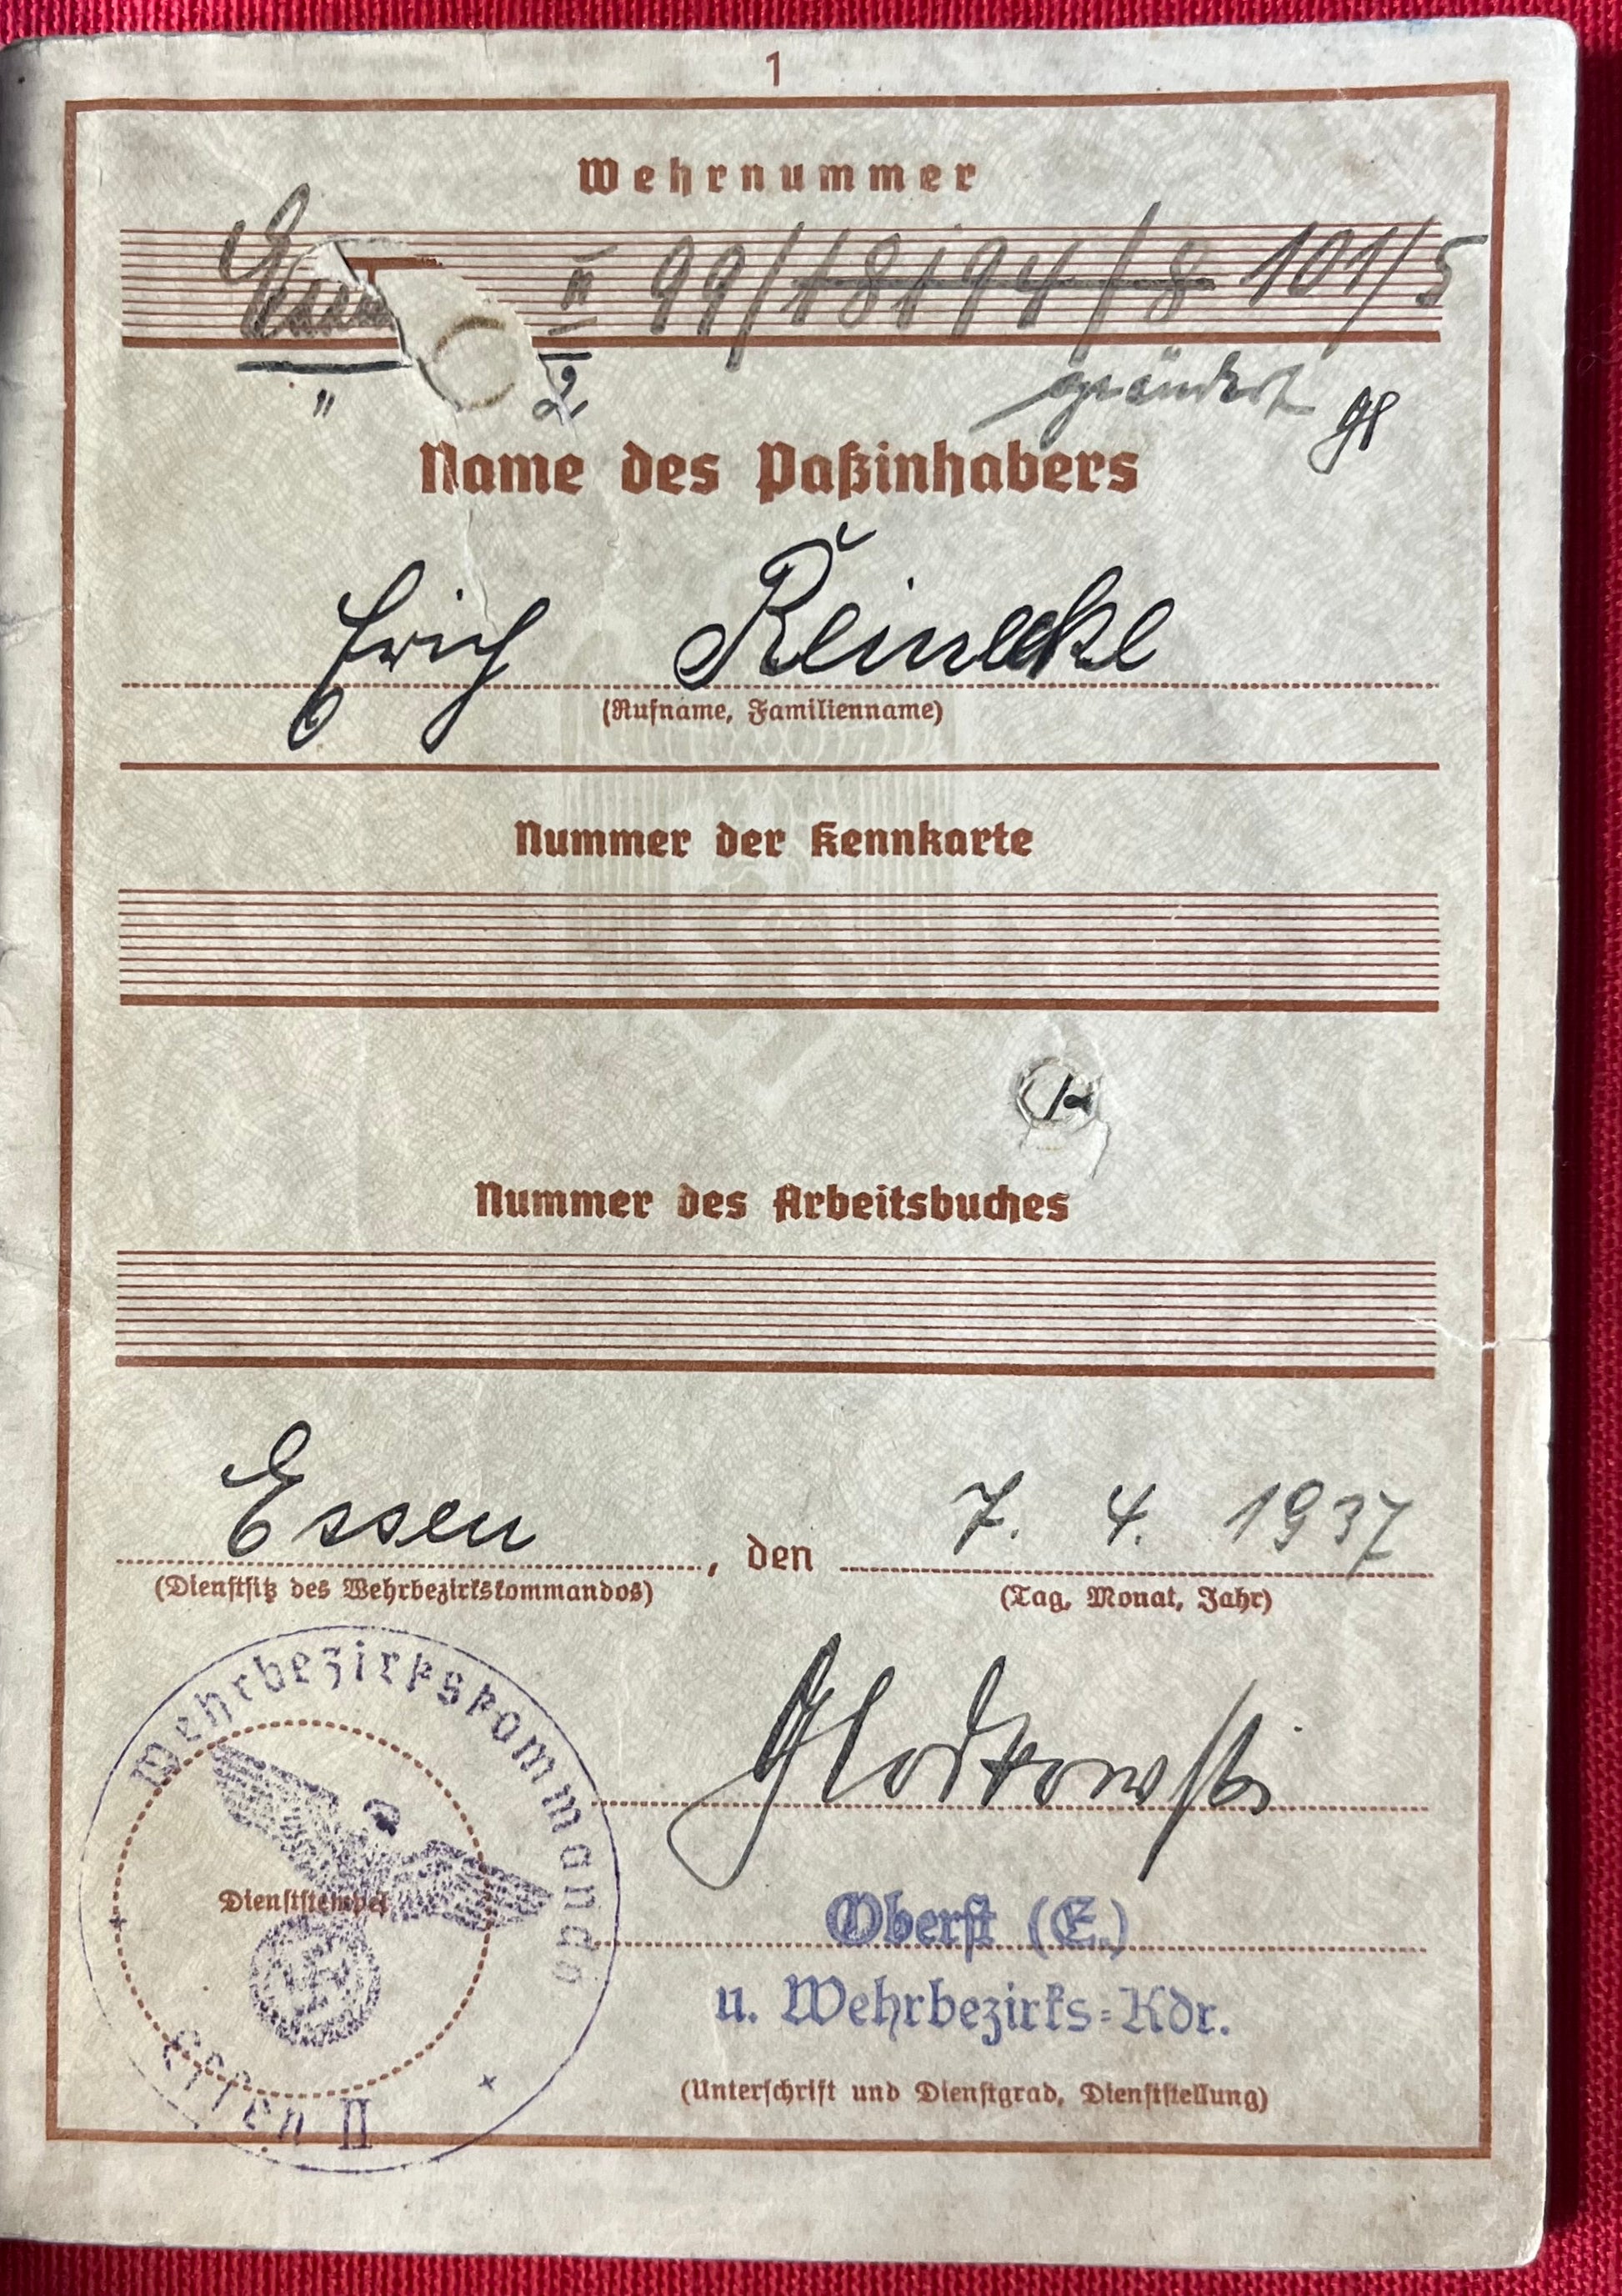 1
Wehrnummer
Essen II 99/18194/8 101/5
" 2 geändert
Name des Paßinhabers
Erich Reinecke
(Rufname, Familienname)
Nummer der Kennkarte
Nummer des Arbeitsbuches
Essen, den 7. 4. 1937
(Dienstsitz des Wehrbezirkskommandos) (Tag, Monat, Jahr)
Wehrbezirkskommando
Dienststempel
Essen II
Oberst (E.)
u. Wehrbezirks=Kdr.
(Unterschrift und Dienstgrad, Dienststellung)